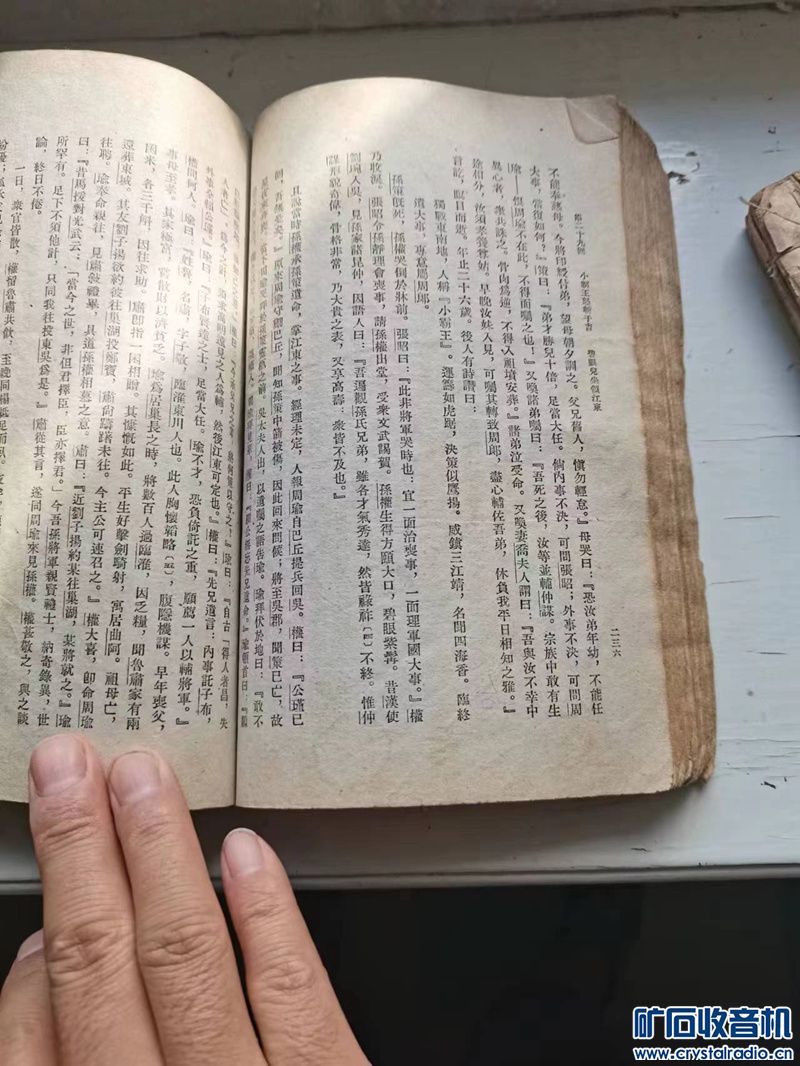 第二十九回 小霸王怒斬于吉 碧眼兒坐領江東
二三六
不能奉慈母。今將印綬付弟，望母朝夕訓之。父兄舊人，愼勿輕怠。』母哭曰：『恐汝弟年幼，不能任
大事，當復如何？』策曰：『弟才勝兒十倍，足當大任。倘內事不決，可問張昭；外事不決，可問周
瑜——恨周瑜不在此，不得面囑之也！』又喚諸弟囑曰：『吾死之後，汝等並輔仲謀。宗族中敢有生
異心者，衆共誅之。骨肉爲逆，不得入祖墳安葬。』諸弟泣受命。又喚妻喬夫人謂曰：『吾與汝不幸中
途相分，汝須孝養尊姑。早晚汝妹入見，可囑其轉致周郎，盡心輔佐吾弟，休負我平日相知之雅。』
言訖，瞑目而逝。年止二十六歲。後人有詩讚曰：
獨戰東南地，人稱『小霸王』。運籌如虎踞，決策似鷹揚。威鎭三江靖，名聞四海香。臨終
遺大事，專意屬周郎。
孫策旣死，孫權哭倒於牀前。張昭曰：『此非將軍哭時也：宜一面治喪事，一面理軍國大事。』權
乃收淚。張昭令孫靜理會喪事，請孫權出堂，受衆文武謁賀。孫權生得方頤大口，碧眼紫髯。昔漢使
劉琬入吳，見孫家諸昆仲，因語人曰：『吾遍觀孫氏兄弟，雖各才氣秀達，然皆祿祚〔四〕不終。惟仲
謀形貌奇偉，骨格非常，乃大貴之表，又享高壽：衆皆不及也。』
且說當時孫權承孫策遺命，掌江東之事。經理未定，人報周瑜自巴丘提兵回吳。權曰：『公瑾已
回，吾無憂矣。』原來周瑜守禦巴丘，聞知孫策中箭被傷，因此回來問候；將至吳郡，聞策已亡，故
吳太夫人出，以遺囑之語告瑜。瑜拜伏於地曰：『敢不
瑜曰：『自古「得人者昌，失
人者亡」
遠見之人爲輔，然後江東可定也。』權曰：『先兄遺言：內事託子布，
外事全賴公瑾。』瑜曰：『子布賢達之士，足當大任。瑜不才，恐負倚託之重，願薦一人以輔將軍。』
權問何人。瑜曰：『姓魯，名肅，字子敬，臨淮東川人也。此人胸懷韜略〔五〕，腹隱機謀。早年喪父，
事母至孝。其家極富，嘗散財以濟貧乏。瑜爲居巢長之時，將數百人過臨淮，因乏糧，聞魯肅家有兩
囷米，各三千斛，因往求助。肅卽指一囷相贈。其慷慨如此。平生好擊劍騎射，寓居曲阿。祖母亡，
還葬東城。其友劉子揚欲約彼往巢湖投鄭寶，肅尙躊躇未往。今主公可速召之。』權大喜，卽命周瑜
往聘。瑜奉命親往，見肅敍禮畢，具道孫權相慕之意。肅曰：『近劉子揚約某往巢湖，某將就之。』瑜
曰：『昔馬援對光武云：「當今之世，非但君擇臣，臣亦擇君。」今吾孫將軍親賢禮士，納奇錄異，世
所罕有。足下不須他計，只同我往投東吳爲是。』肅從其言，遂同周瑜來見孫權。權甚敬之，與之談
論，終日不倦。
一日，衆官皆散，權留魯肅共飲，至晚同榻抵足而臥。
矿石收音机
www.crystalradio.cn